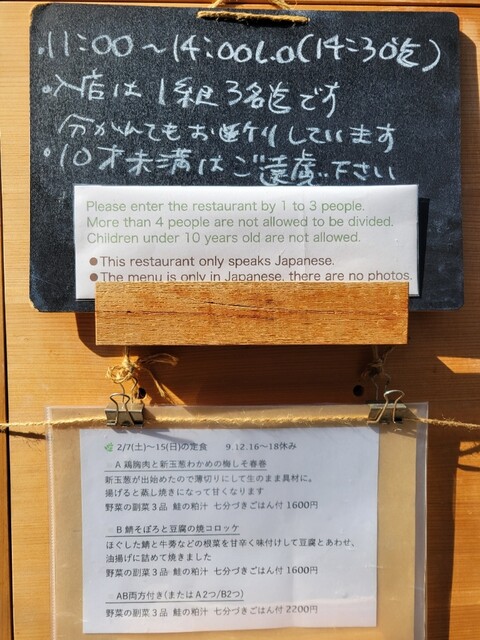 ・11:00～14:00L.O(14:30迄)
・入店は1組3名迄です
分かれてもお断りしています
・10才未満はご遠慮下さい
Please enter the restaurant by 1 to 3 people.
More than 4 people are not allowed to be divided.
Children under 10 years old are not allowed.
●This restaurant only speaks Japanese.
●The menu is only in Japanese, there are no photos.
2/7(土)～15(日)の定食 9.12.16～18休み
A 鶏胸肉と新玉葱わかめの梅しそ春巻
新玉葱が出始めたので薄切りにして生のまま具材に。
揚げると蒸し焼きになって甘くなります
野菜の副菜3品 鮭の粕汁 七分づきごはん付 1600円
B 鯖そぼろと豆腐の焼コロッケ
ほぐした鯖と牛蒡などの根菜を甘辛く味付けして豆腐とあわせ、
油揚げに詰めて焼きました
野菜の副菜3品 鮭の粕汁 七分づきごはん付 1600円
AB両方付き(またはA2つ/B2つ)
野菜の副菜3品 鮭の粕汁 七分づきごはん付 2200円